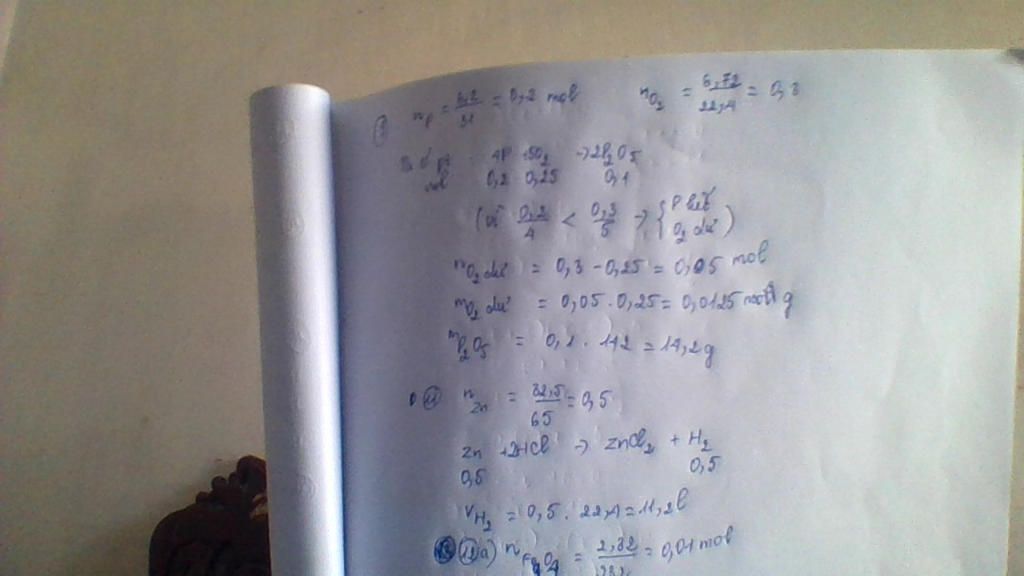 n_P = 6,2/31 = 0,2 mol n_O2 = 6,72/22,4 = 0,3
4P + 5O2 → 2P2O5
mol 0,2 0,25 0,1
(vì 0,2/4 < 0,3/5 → { P hết O2 dư )
n_O2 dư = 0,3 - 0,25 = 0,05 mol
m_O2 dư = 0,05 . 0,25 = 0,0125 g
m_P2O5 = 0,1 . 142 = 14,2g
11 n_Zn = 32,5/65 = 0,5
Zn + 2HCl → ZnCl2 + H2
0,5 0,5
V_H2 = 0,5 . 22,4 = 11,2l
12 a) n_Fe3O4 = 2,32/232 = 0,01 mol